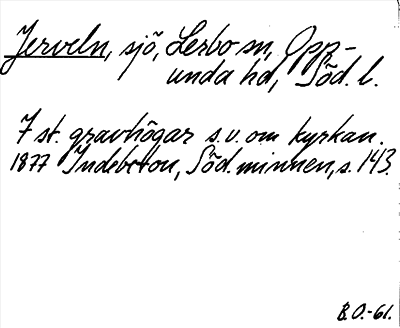 Jerveln, sjö, Lerbo sn, Opp-
unda hd, Söd. l.
7 st. gravhögar s.v. om kyrkan.
1877 Indebetou, Söd. minnen, s. 143.
B.O.-61.